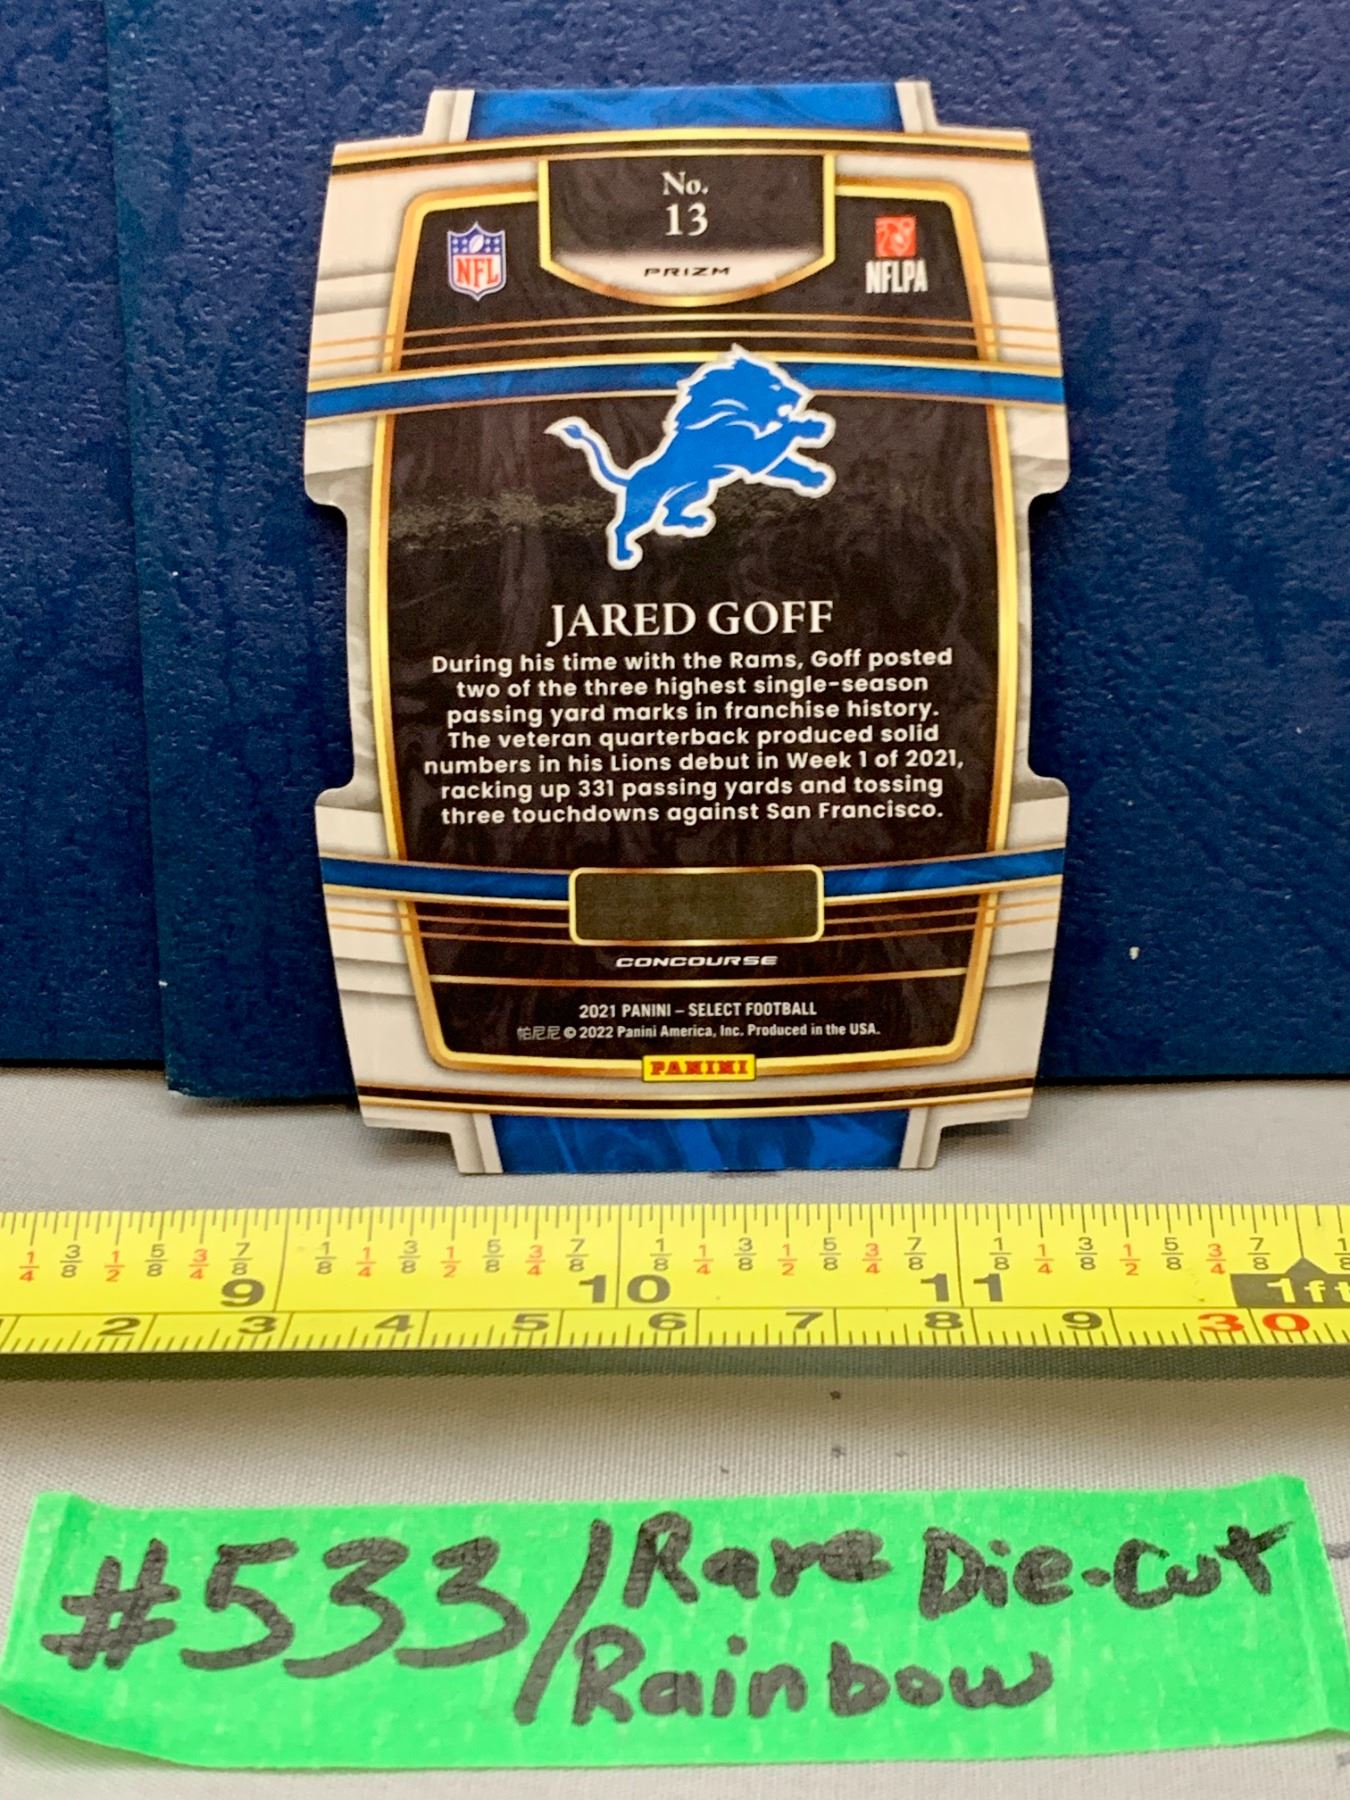 No.
13
PRIZM
NFL
NFLPA
JARED GOFF
During his time with the Rams, Goff posted
two of the three highest single-season
passing yard marks in franchise history.
The veteran quarterback produced solid
numbers in his Lions debut in Week 1 of 2021,
racking up 331 passing yards and tossing
three touchdowns against San Francisco.
CONCOURSE
2021 PANINI – SELECT FOOTBALL
帕尼尼 © 2022 Panini America, Inc. Produced in the USA.
PANINI
1/4 3/8 1/2 5/8 3/4 7/8 1/8 1/4 3/8 1/2 5/8 3/4 7/8 1/8 1/4 3/8 1/2 5/8 3/4 7/8 1/8 1/4 3/8 1/2 5/8 3/4 7/8 1/8
9 10 11 1ft
2 3 4 5 6 7 8 9 30
#533/Rare Die-Cut
Rainbow